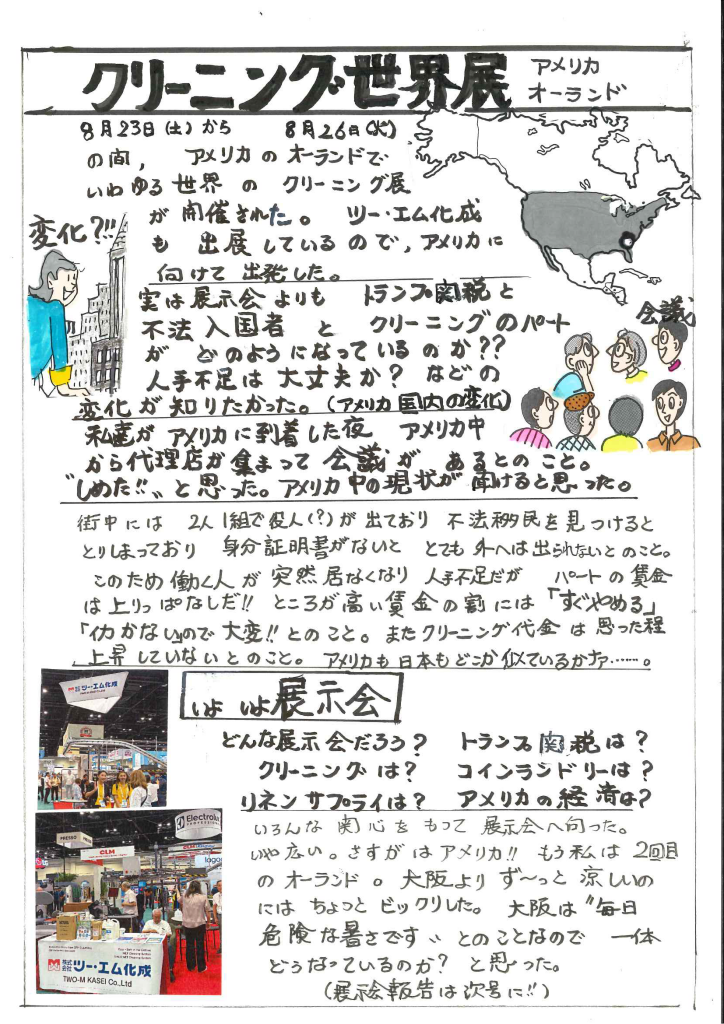 クリーニング世界展
アメリカ
オーランド
8月23日(土)から 8月26日(火)
の間, アメリカのオーランドで
いわゆる世界の クリーニング展
が開催された。 ツー・エム化成
も 出展しているので,アメリカに
向けて出発した。
変化?!!
実は展示会よりも トランプ関税と
不法入国者 と クリーニングのパート
が どのようになっているのか??
人手不足は 大丈夫か? などの
変化が知りたかった。(アメリカ国内の変化)
会議
私達が アメリカに到着した夜 アメリカ中
から代理店が集まって会議が あるとのこと。
"しめた!!"と思った。アメリカ中の現状が聞けると思った。
街中には 2人1組で役人(?)が出ており 不法移民を見つけると
とりしまっており 身分証明書がないと とても外へは出られないとのこと。
このため働く人が突然居なくなり 人手不足だが パートの賃金
は上りっぱなしだ!! ところが高い賃金の割には「すぐやめる」
「イカかない」ので大変!!とのこと。またクリーニング代金は思った程
上昇していないとのこと。 アメリカも日本もどこか似ているかナァ……。
いよいよ展示会
どんな展示会だろう? トランプ関税は?
クリーニングは? コインランドリーは?
リネンサプライは? アメリカの経済は?
いろんな 関心を もって 展示会へ向った。
いや広い。さすがはアメリカ!! もう私は2回目
のオーランド。大阪より ず〜っと 涼しいの
にはちょっとビックリした。 大阪は"毎日
危険な暑さです"とのことなので 一体
どうなっているのか? と思った。
(展示会報告は次号に!!)
株式会社 ツー・エム化成
Electrolux
PROFESSIONAL
CLM
株式会社 ツー・エム化成
TWO-M KASEI Co.,Ltd